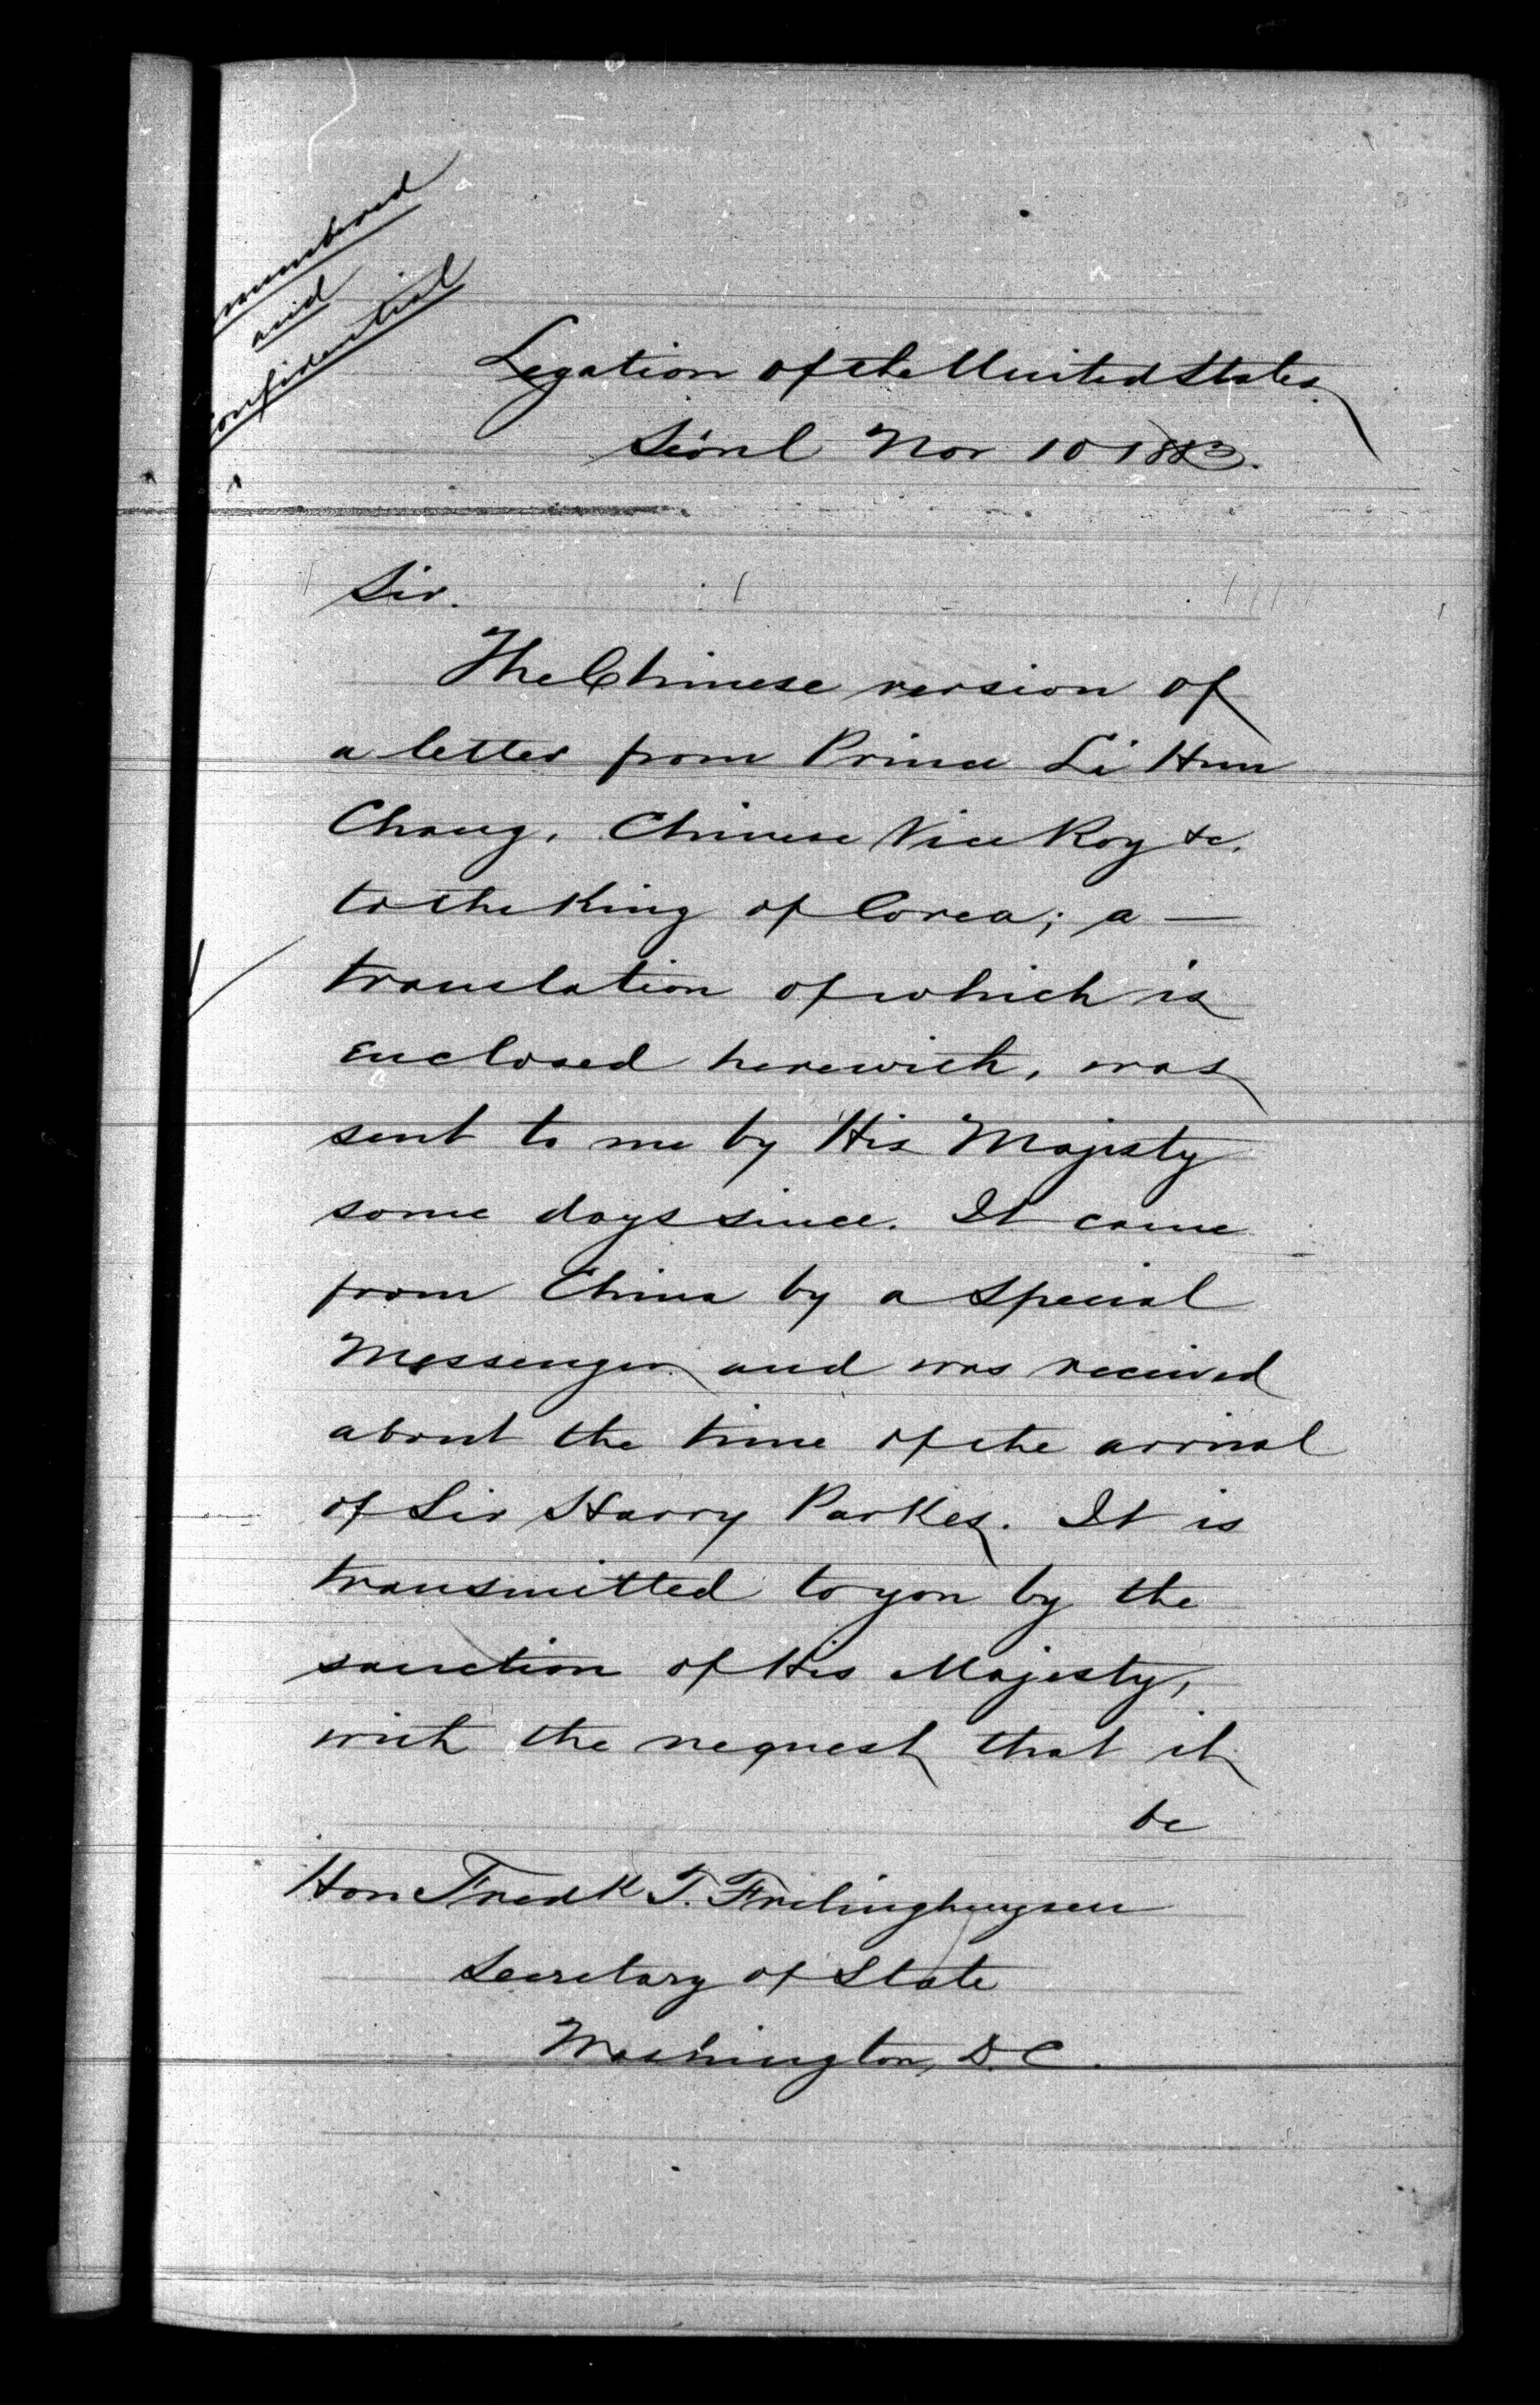 numbered
and
onfidential
Legation of the United States
Séoul Nov 10 1883.
Sir.
The Chinese version of
a letter from Prince Li Hun
Chang, Chinese Vice Roy &c.
to the King of Corea; a —
translation of which is
enclosed herewith, was
sent to me by His Majesty
some days since. It came
from China by a special
Messenger and was received
about the time of the arrival
of Sir Harry Parkes. It is
transmitted to you by the
sanction of His Majesty,
with the request that it
be
Hon Fredk T. Frelinghuysen
Secretary of State
Washington, D.C.